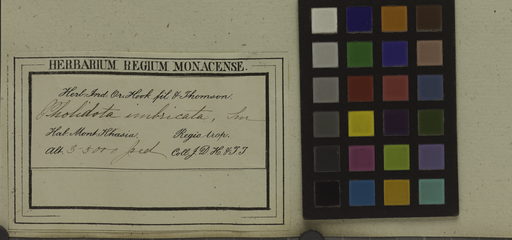 HERBARIUM REGIUM MONACENSE.
Herb. Ind. Or. Hook. fil. & Thomson.
Pholidota imbricata,
Hab. Mont. Khasia, Regio trop.
Alt. 3-5000 ped Coll. J. D. H. & T. T